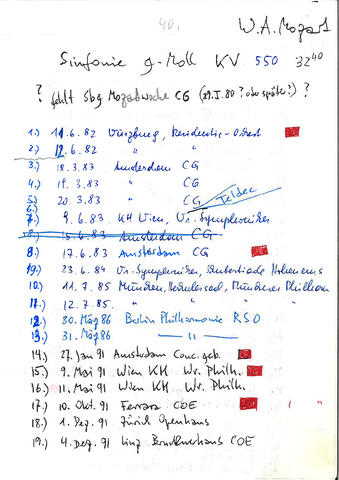 40.
W.A. Mozart
Sinfonie g-Moll KV 550 32⁴⁰
? fehlt Sbg Mozartwoche CG (29.I.80 ? oder später?) ?
1.) 11.6.82 Würzburg, Residenz-
2.) 12.6.82 " "
3.) 18.3.83 Amsterdam CG
4.) 19.3.83 " CG
5.) 20.3.83 " CG Teldec
6.)
7.) 9.6.83. KH Wien, Wr. Symphoniker
8.) 15.6.83 Amsterdam CG
8.) 17.6.83 Amsterdam CG
9.) 23.6.84 Wr. Symphoniker, Hohenems
10.) 11.7.85 München, Herkulessaal, Münchner Philharm
11.) 12.7.85. " " "
12.) 30. März 86 Berlin Philharmonie RSO
13.) 31. März 86 — " —
14.) 27. Jan 91 Amsterdam Conc.geb.
15.) 9. Mai 91 Wien KH Wr. Philh.
16.) 11. Mai 91 Wien KH Wr. Philh.
17.) 10. Okt. 91 Ferrara COE
18.) 1. Dez. 91 Zürich Opernhaus
19.) 4. Dez. 91 Linz Brucknerhaus COE